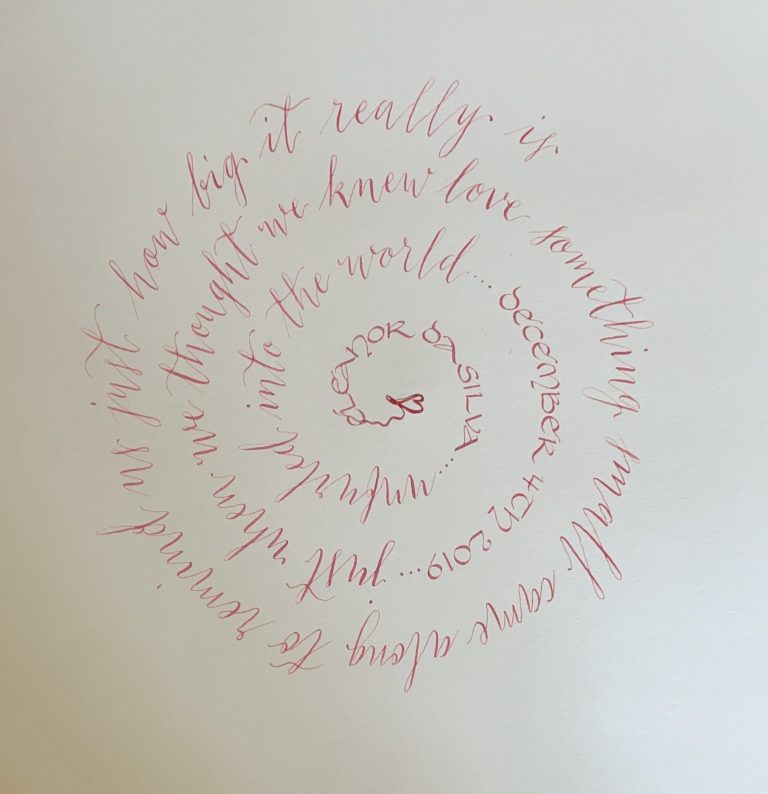 Eleanor da Silva... unfurled into the world... December 4th 2019... just when we thought we knew love something small came along to remind us just how big it really is